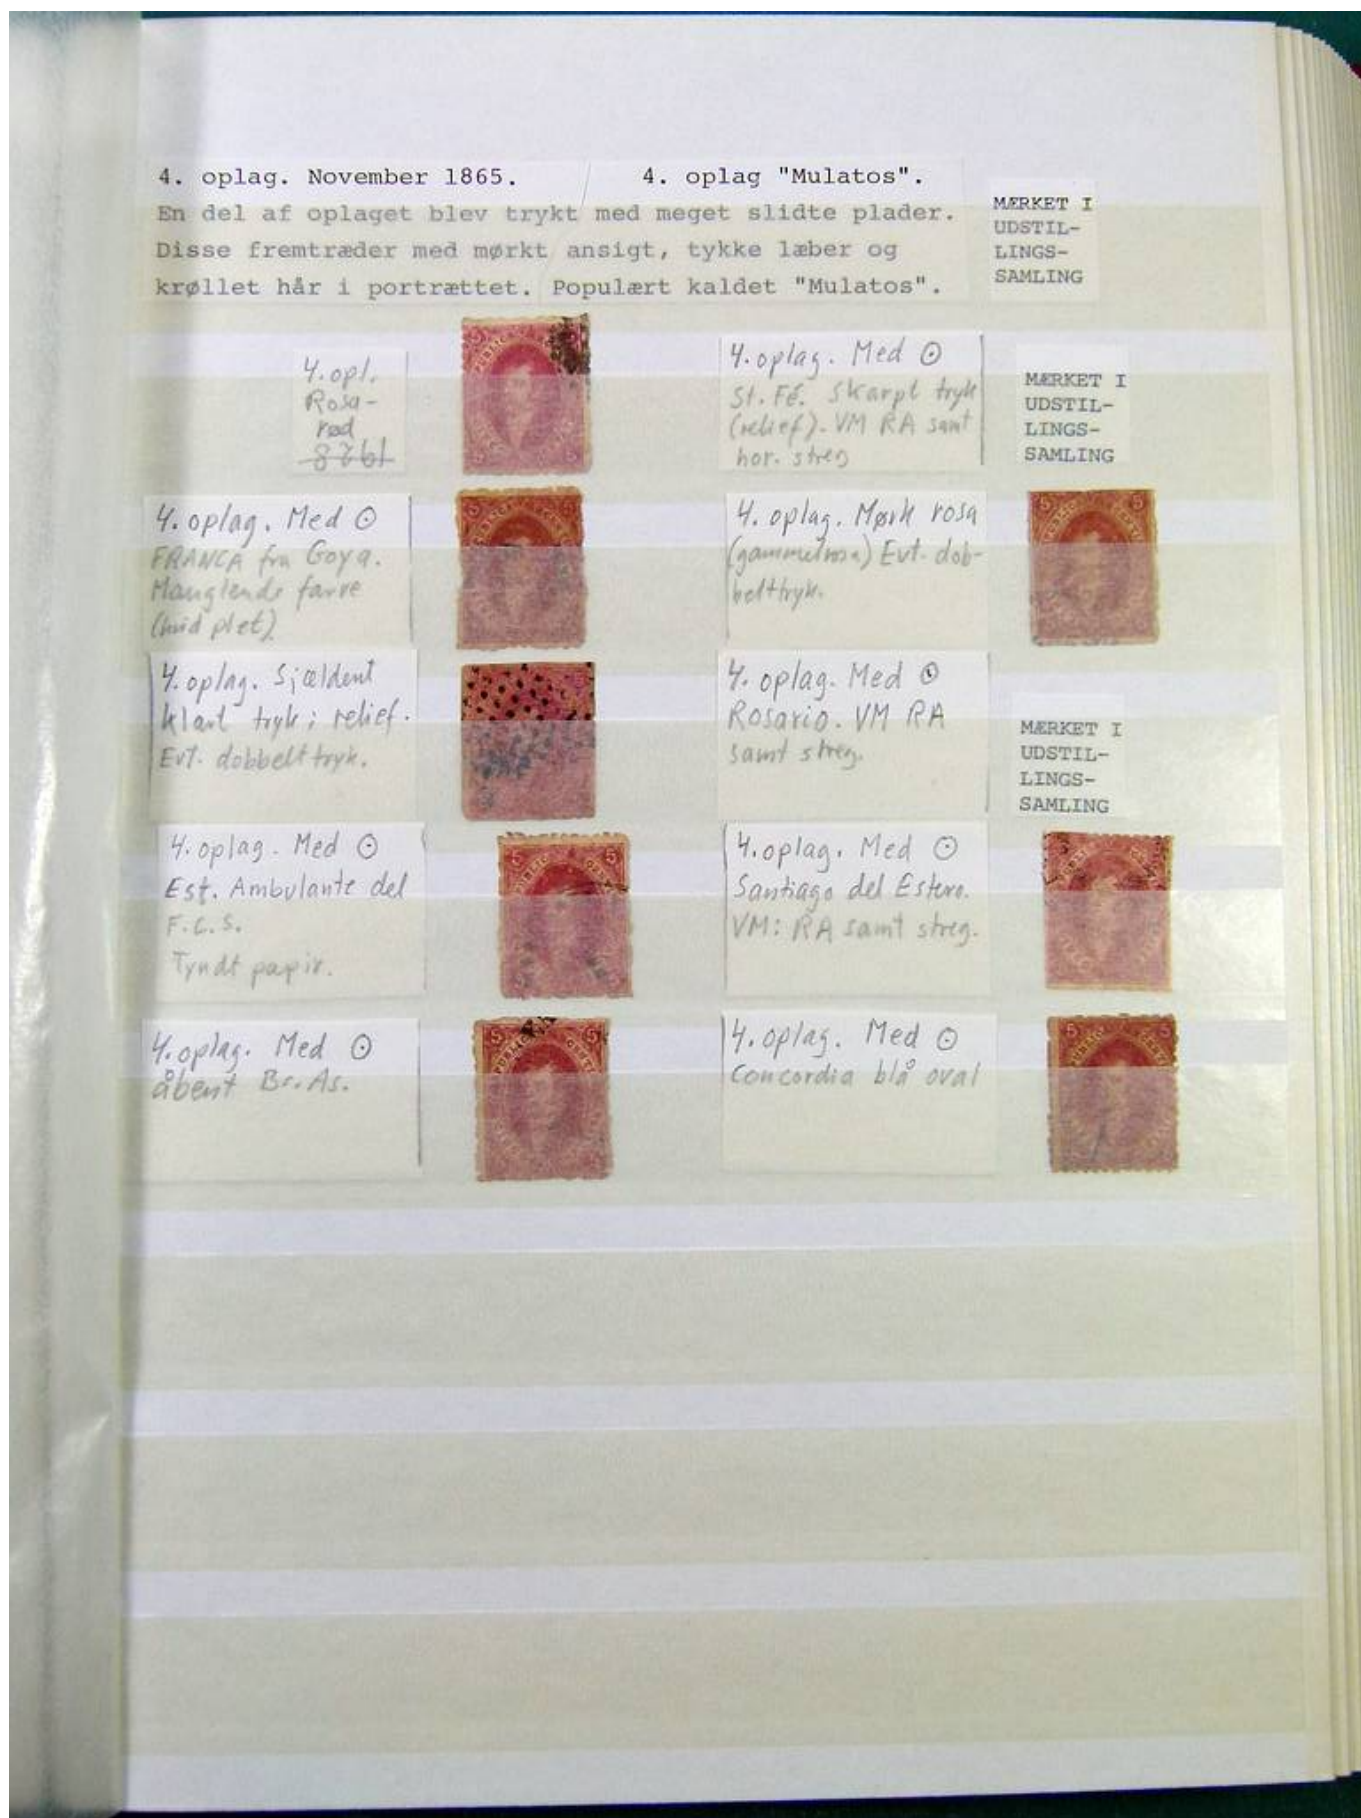 4. oplag. November 1865.
4. oplag "Mulatos".
En del af oplaget blev trykt med meget slidte plader.
Disse fremtræder med mørkt ansigt, tykke læber og
krøllet hår i portrættet. Populært kaldet "Mulatos".
MÆRKET I
UDSTIL-
LINGS-
SAMLING
4. opl.
Rosa-
rød
4. oplag. Med ⊙
St. Fé. Skarpt tryk
(relief). VM RA samt
hor. streg
MÆRKET I
UDSTIL-
LINGS-
SAMLING
4. oplag. Med ⊙
FRANCA fra Goya.
Manglende farve
(hvid plet)
4. oplag. Mørk rosa
(gammelrosa) Evt. dob-
belttryk.
4. oplag. Sjældent
klart tryk i relief.
Evt. dobbelttryk.
4. oplag. Med ⊙
Rosario. VM RA
samt streg.
MÆRKET I
UDSTIL-
LINGS-
SAMLING
4. oplag. Med ⊙
Est. Ambulante del
F.C.S.
Tyndt papir.
4. oplag. Med ⊙
Santiago del Estero.
VM: RA samt streg.
4. oplag. Med ⊙
åbent Bs. As.
4. oplag. Med ⊙
Concordia blå oval